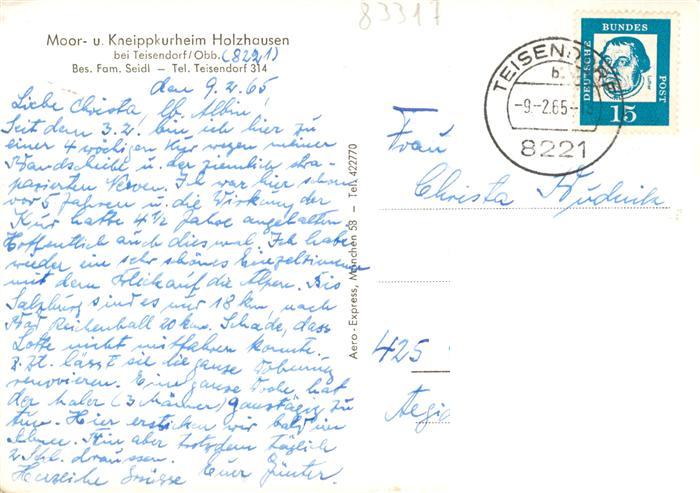 83317
Moor- u. Kneippkurheim Holzhausen
bei Teisendorf/Obb. (8221)
Bes. Fam. Seidl — Tel. Teisendorf 314
den 9.2.65
Liebe Christa, lb. Albin!
Seit dem 3.2. bin ich hier zu
einer 4 wöchigen Kur wegen meiner
Bandscheibe u. der ziemlich stra-
pazierten Nerven. Ich war hier schon
vor 5 Jahren u. die Wirkung der
Kur hatte 4½ Jahre angehalten
Hoffentlich auch diesmal. Ich habe
wieder ein sehr schönes Einzelzimmer
mit dem Blick auf die Alpen. Bis
Salzburg sind es nur 18 km, nach
Bad Reichenhall 20 km. Schade, dass
Lotte nicht mitfahren konnte.
z. Zt. lässt sie die ganze Wohnung
renovieren. Eine ganze Woche hat
der Maler (3 Männer) ganztägig zu
tun. Hier ersticken wir bald im
Schnee. Bin aber trotzdem täglich
2 Std. draussen.
Herzliche Grüsse Euer Günter.
Aero-Express, München 58 — Tel. 422770
TEISENDORF
b.
-9.-2.65-
8221
DEUTSCHE BUNDES POST
15
Frau
Christa Rudnik
425
Aegi